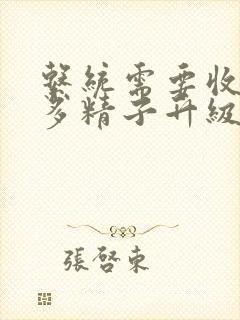 繫統需要收
多精子升級
張啓東